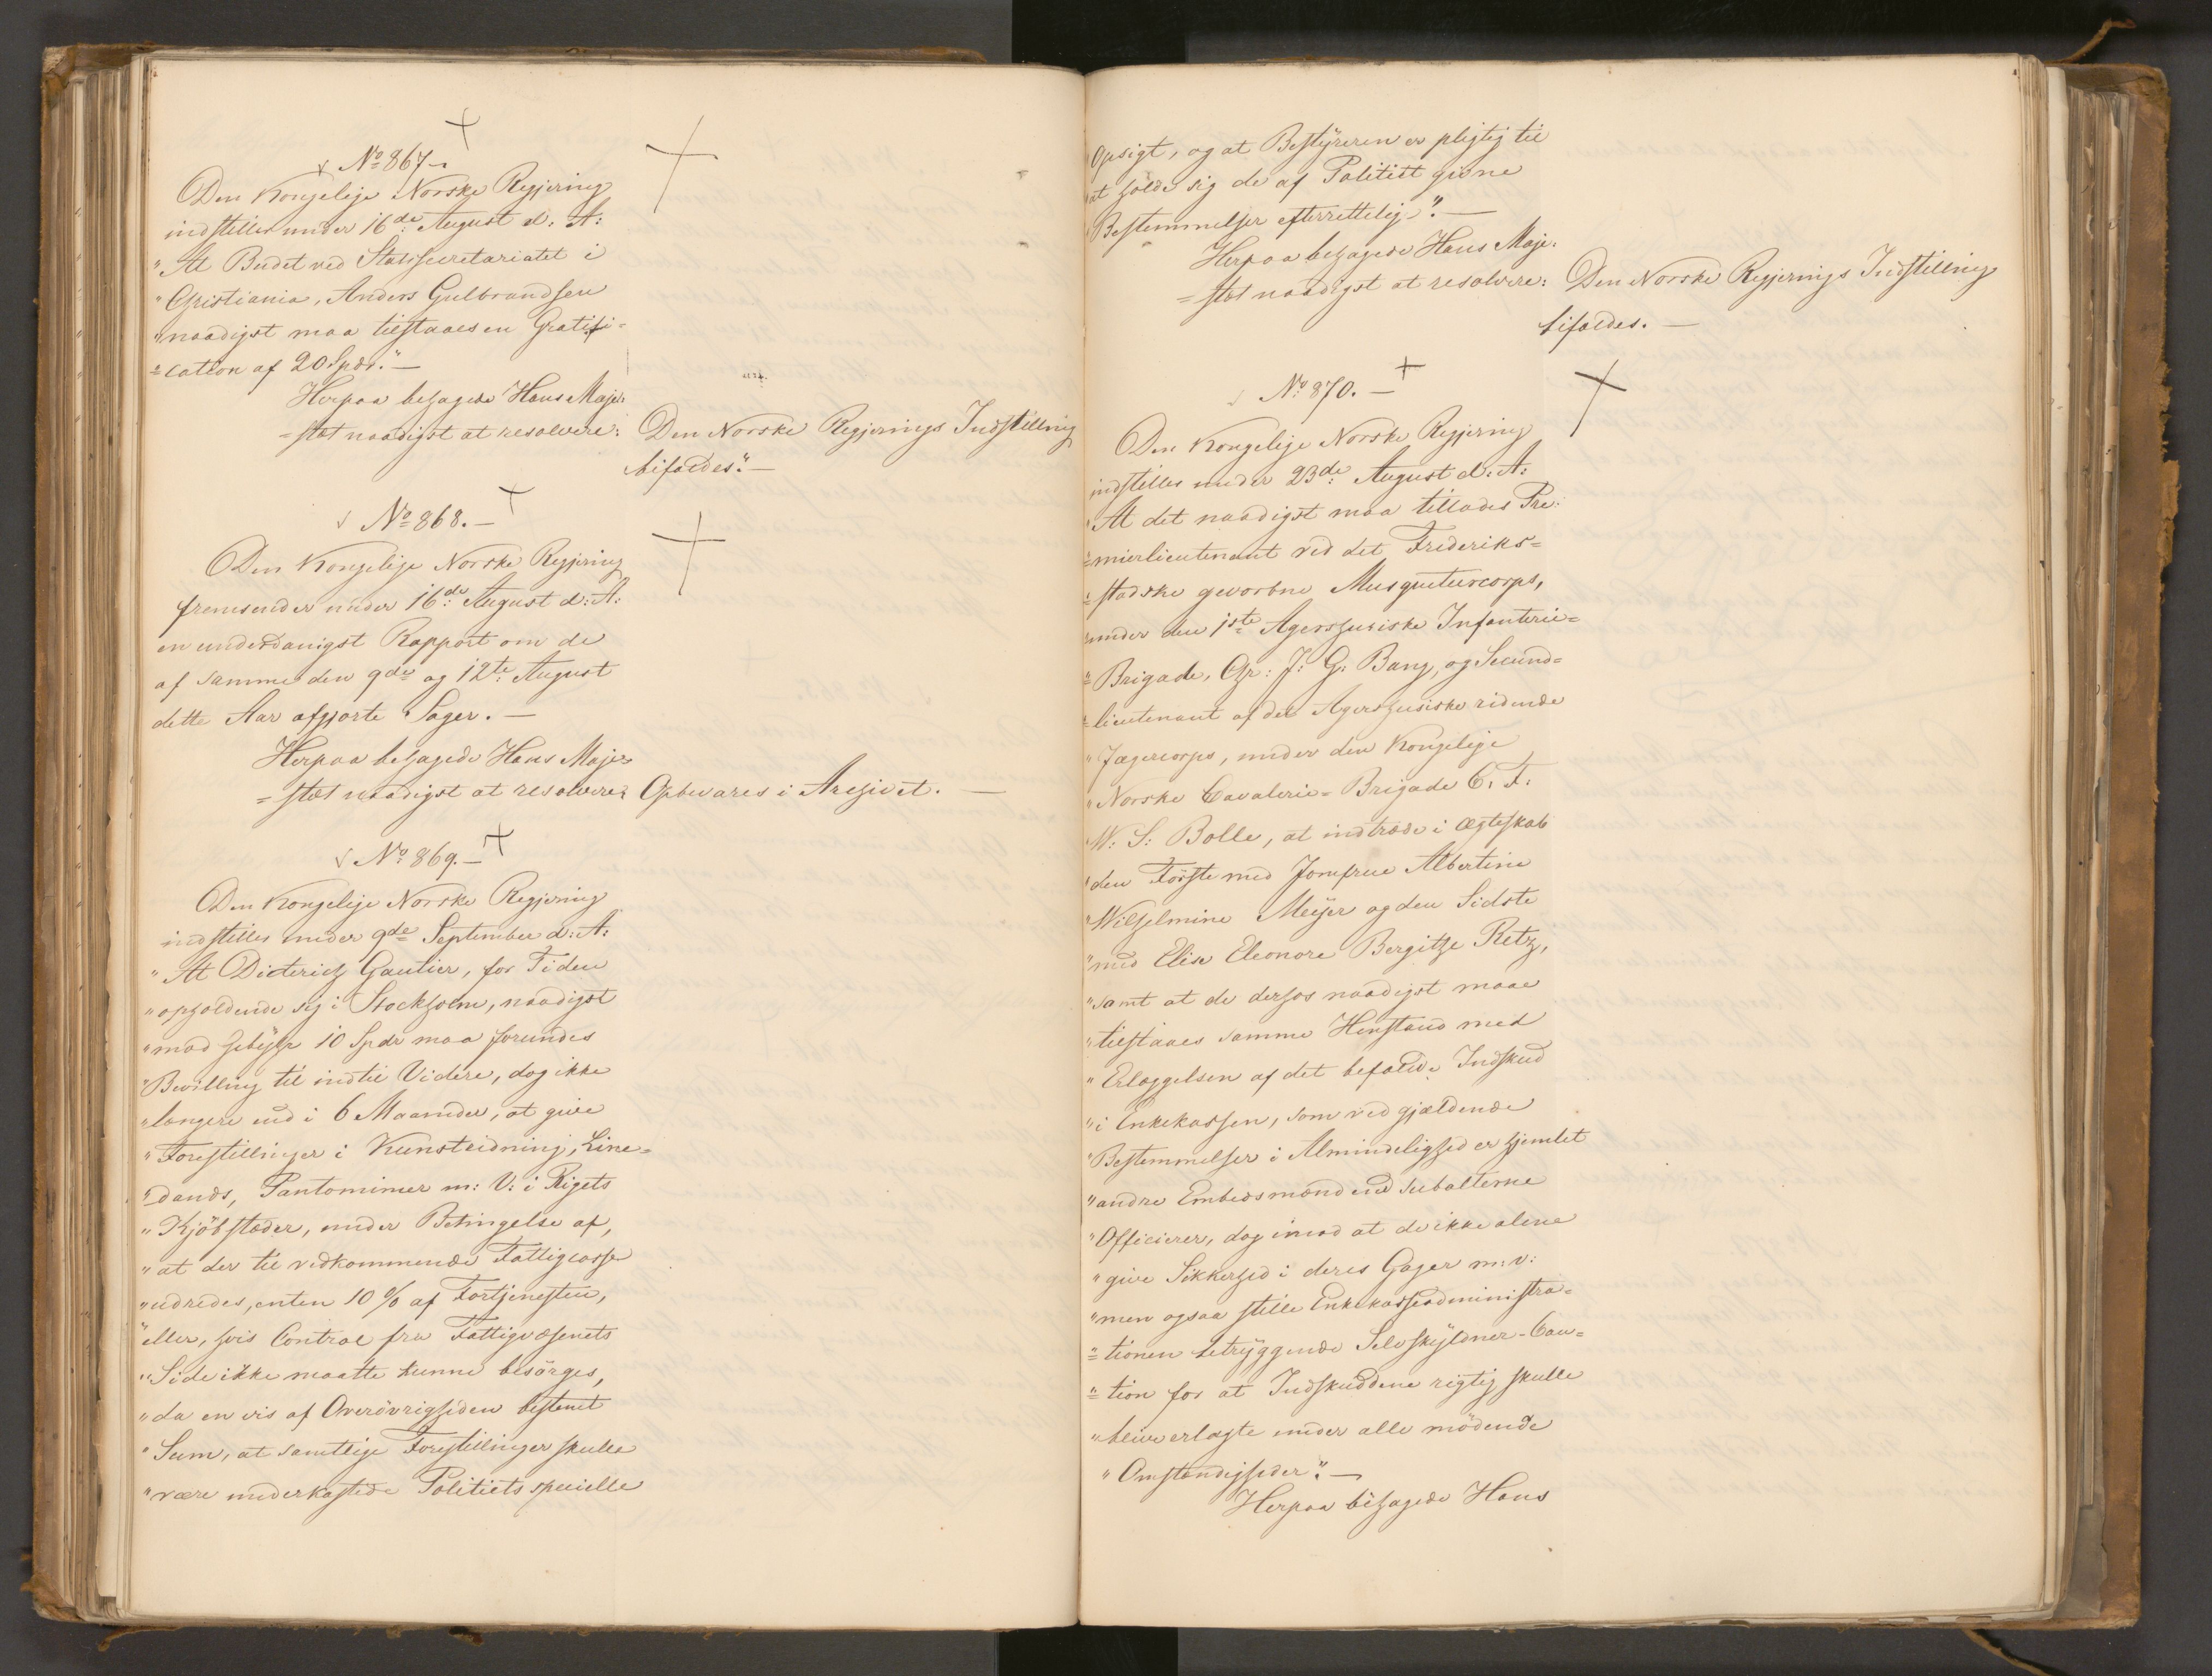 No 867.
Den Kongelige Norske Regjering
indstiller under 16de August d: A:
"At Budet ved Statssecretariatet i
"Christiania, Anders Gulbrandsen
"naadigst maa tilstaaes en Gratifi=
"cation af 20 Spdr." —
Herpaa behagede Hans Maje=
=stæt naadigst at resolvere: Den Norske Regjerings Indstilling
bifaldes." —
No 868. —
Den Kongelige Norske Regjering
fremsender under 16de August d: A:
en underdanigst Rapport om de
af samme den 9de og 12te August
dette Aar afgjorte Sager. —
Herpaa behagede Hans Maje=
=stæt naadigst at resolvere: Opbevares i Archivet. —
No 869. —
Den Kongelige Norske Regjering
indstiller under 9de September d: A:
"At Dieterich Gautier, for Tiden
"opholdende sig i Stockholm, naadigst
"mod Gebyhr 10 Spdr maa forundes
"Bevilling til indtil Videre, dog ikke
"længere end i 6 Maaneder, at give
"Forestillinger i Kunstridning, Line=
"dands, Pantomimer m: V: i Rigets
"Kjöbstæder, under Betingelse af,
"at der til vedkommende Fattigcasse
"udredes, enten 10 % af Fortjenesten,
"eller, hvis Control fra Fattigvæsenets
"Side ikke maatte kunne besörges,
"da en vis af Overövrigheden bestemt
"Sum, at samtlige Forestillinger skulle
"være underkastede Politiets specielle
"Opsigt, og at Bestyreren er pligtig til
"at holde sig de af Politiet givne
"Bestemmelser efterrettelig". —
Herpaa behagede Hans Maje=
=stæt naadigst at resolvere: Den Norske Regjerings Indstilling
bifaldes. —
No 870. —
Den Kongelige Norske Regjering
indstiller under 23de August d: A:
"At det naadigst maa tillades Pre=
"mierlieutenant ved det Frederiks=
"stadske gevorbne Musqueteercorps,
"under den 1ste Agershusiske Infanterie=
"Brigade, Chr: J: G: Bang, og Secund=
"lieutenant af det Agershusiske ridende
"Jægercorps, under den Kongelige
"Norske Cavalerie-Brigade C. F:
"W: S: Bolle, at indtræde i Ægteskab
"den Förste med Jomfrue Albertine
"Wilhelmine Meijer og den Sidste
"med Elise Eleonore Bergithe Retz,
"samt at de derhos naadigst maae
"tilstaaes samme Henstand med
"Erlæggelsen af det befalede Indskud
"i Enkekassen, som ved gjældende
"Bestemmelser i Almindelighed er hjemlet
"andre Embedsmænd end subalterne
"Officierer, dog imod at de ikke alene
"give Sikkerhed i deres Gager m: v:
"men ogsaa stille Enkekasseadministra=
"tionen betryggende Selvskyldner-Cau=
"tion for at Indskuddene rigtig skulle
"blive erlagte under alle mödende
"Omstændigheder". —
Herpaa behagede Hans